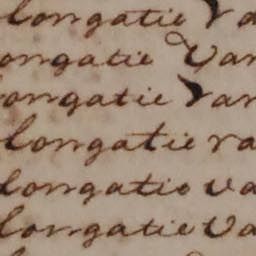 longatie Va
ongatie Van
longatie Van
longatie va
longatie va
longatie Va